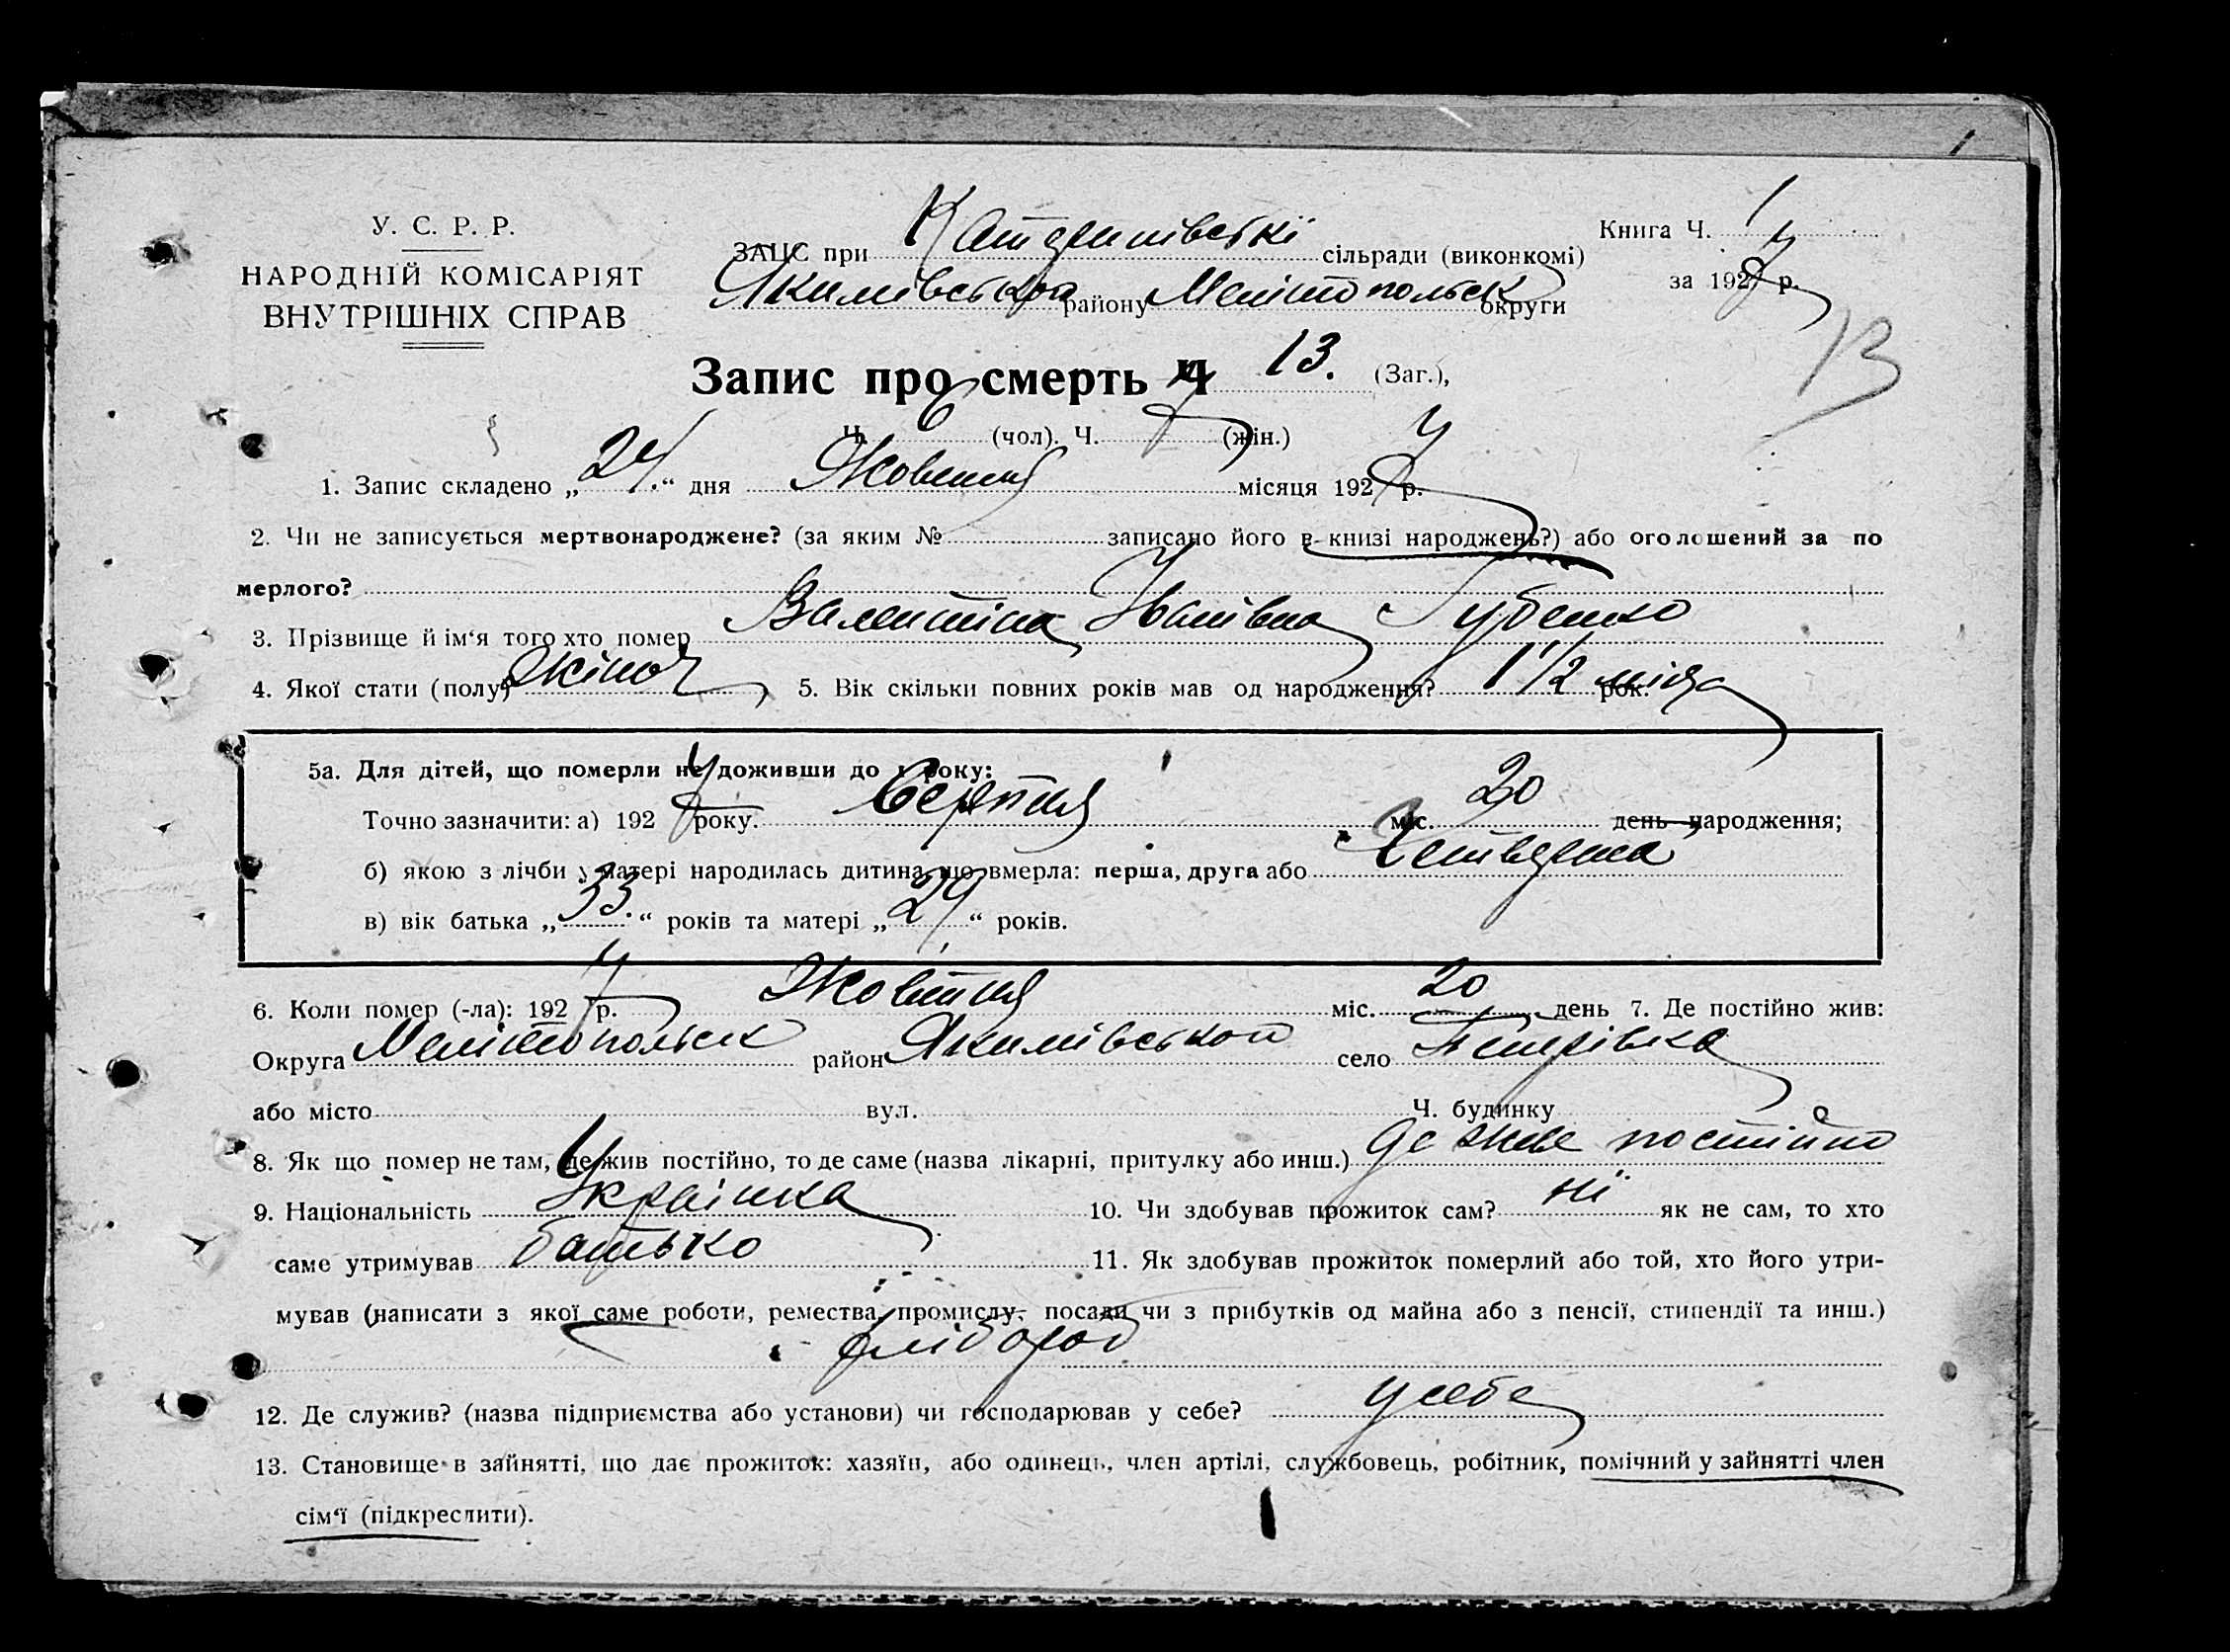 1
У. С. Р. Р.
НАРОДНІЙ КОМІСАРІЯТ
ВНУТРІШНІХ СПРАВ
ЗАЦС при сільради (виконкомі)
Якимівськой району Мелітопольск округи
Книга Ч. 1
за 1927 р.
13
Запис про смерть Ч 13. (Заг.),
Ч. 6 (чол). Ч. 7 (жін.)
1. Запис складено „24.“ дня Жовтня місяця 1927 р.
2. Чи не записується мертвонароджене? (за яким № записано його в книзі народжень?) або оголошений за по
мерлого?
3. Прізвище й ім‘я того хто помер Валентіна Іванівна Губенко
4. Якої стати (полу) жіноч 5. Вік скільки повних років мав од народження? 1 1/2 місяця рок.
5а. Для дітей, що померли не доживши до 1 року:
Точно зазначити: а) 1927 року. Серпня міс. 20 день народження;
б) якою з лічби у матері народилась дитина що вмерла: перша, друга або Четверта
в) вік батька „33.“ років та матері „29“ років.
6. Коли помер (-ла): 1927 р. Жовтня міс. 20 день 7. Де постійно жив:
Округа Мелітопольск район Якимівськой село
або місто вул. Ч. будинку
8. Як що помер не там, де жив постійно, то де саме (назва лікарні, притулку або инш.) де жив постійно
9. Національність Українка 10. Чи здобував прожиток сам? ні як не сам, то хто
саме утримував батько 11. Як здобував прожиток померлий або той, хто його утри-
мував (написати з якої саме роботи, ремества, промислу, посади чи з прибутків од майна або з пенсії, стипендії та инш.)
хлібороб
12. Де служив? (назва підприємства або установи) чи господарював у себе? у себе
13. Становище в зайнятті, що дає прожиток: хазяїн, або одинець, член артілі, службовець, робітник, помічний у зайнятті член
сім‘ї (підкреслити).